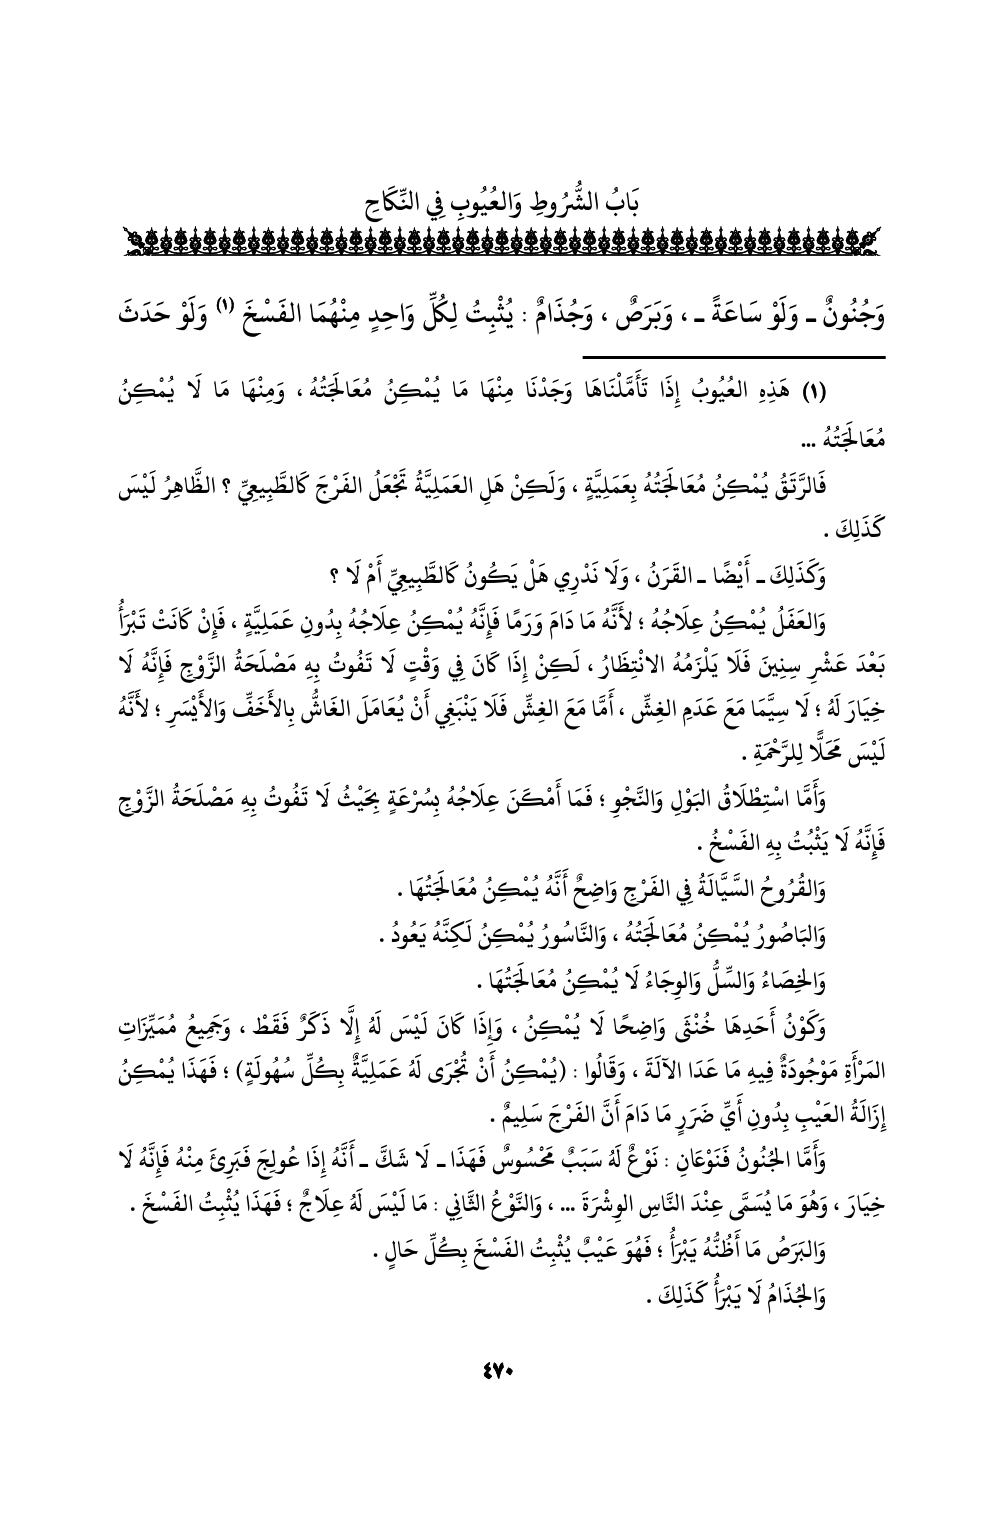 بَابُ الشُّرُوطِ وَالعُيُوبِ فِي النِّكَاحِ
وَجُنُونٌ ـ وَلَوْ سَاعَةً ـ ، وَبَرَصٌ ، وَجُذَامٌ : يُثْبِتُ لِكُلِّ وَاحِدٍ مِنْهُمَا الفَسْخَ (١) وَلَوْ حَدَثَ
(١) هَذِهِ العُيُوبُ إِذَا تَأَمَّلْنَاهَا وَجَدْنَا مِنْهَا مَا يُمْكِنُ مُعَالَجَتُهُ ، وَمِنْهَا مَا لَا يُمْكِنُ
مُعَالَجَتُهُ ...
فَالرَّتَقُ يُمْكِنُ مُعَالَجَتُهُ بِعَمَلِيَّةٍ ، وَلَكِنْ هَلِ العَمَلِيَّةُ تَجْعَلُ الفَرْجَ كَالطَّبِيعِيِّ ؟ الظَّاهِرُ لَيْسَ
كَذَلِكَ .
وَكَذَلِكَ ـ أَيْضًا ـ القَرَنُ ، وَلَا نَدْرِي هَلْ يَكُونُ كَالطَّبِيعِيِّ أَمْ لَا ؟
وَالعَفَلُ يُمْكِنُ عِلَاجُهُ ؛ لأَنَّهُ مَا دَامَ وَرَمًا فَإِنَّهُ يُمْكِنُ عِلَاجُهُ بِدُونِ عَمَلِيَّةٍ ، فَإِنْ كَانَتْ تَبْرَأُ
بَعْدَ عَشْرِ سِنِينَ فَلَا يَلْزَمُهُ الانْتِظَارُ ، لَكِنْ إِذَا كَانَ فِي وَقْتٍ لَا تَفُوتُ بِهِ مَصْلَحَةُ الزَّوْجِ فَإِنَّهُ لَا
خِيَارَ لَهُ ؛ لَا سِيَّمَا مَعَ عَدَمِ الغِشِّ ، أَمَّا مَعَ الغِشِّ فَلَا يَنْبَغِي أَنْ يُعَامَلَ الغَاشُّ بِالأَخَفِّ وَالأَيْسَرِ ؛ لأَنَّهُ
لَيْسَ مَحَلًّا لِلرَّحْمَةِ .
وَأَمَّا اسْتِطْلَاقُ البَوْلِ وَالنَّجْوِ ؛ فَمَا أَمْكَنَ عِلَاجُهُ بِسُرْعَةٍ بِحَيْثُ لَا تَفُوتُ بِهِ مَصْلَحَةُ الزَّوْجِ
فَإِنَّهُ لَا يَثْبُتُ بِهِ الفَسْخُ .
وَالقُرُوحُ السَّيَّالَةُ فِي الفَرْجِ وَاضِحٌ أَنَّهُ يُمْكِنُ مُعَالَجَتُهَا .
وَالبَاصُورُ يُمْكِنُ مُعَالَجَتُهُ ، وَالنَّاسُورُ يُمْكِنُ لَكِنَّهُ يَعُودُ .
وَالخِصَاءُ وَالسِّلُّ وَالوِجَاءُ لَا يُمْكِنُ مُعَالَجَتُهَا .
وَكَوْنُ أَحَدِهَا خُنْثَى وَاضِحًا لَا يُمْكِنُ ، وَإِذَا كَانَ لَيْسَ لَهُ إِلَّا ذَكَرٌ فَقَطْ ، وَجَمِيعُ مُمَيِّزَاتِ
المَرْأَةِ مَوْجُودَةٌ فِيهِ مَا عَدَا الآلَةَ ، وَقَالُوا : (يُمْكِنُ أَنْ تُجْرَى لَهُ عَمَلِيَّةٌ بِكُلِّ سُهُولَةٍ) ؛ فَهَذَا يُمْكِنُ
إِزَالَةُ العَيْبِ بِدُونِ أَيِّ ضَرَرٍ مَا دَامَ أَنَّ الفَرْجَ سَلِيمٌ .
وَأَمَّا الجُنُونُ فَنَوْعَانِ : نَوْعٌ لَهُ سَبَبٌ مَحْسُوسٌ فَهَذَا ـ لَا شَكَّ ـ أَنَّهُ إِذَا عُولِجَ فَبَرِئَ مِنْهُ فَإِنَّهُ لَا
خِيَارَ ، وَهُوَ مَا يُسَمَّى عِنْدَ النَّاسِ الوِشْرَةَ ... ، وَالنَّوْعُ الثَّانِي : مَا لَيْسَ لَهُ عِلَاجٌ ؛ فَهَذَا يُثْبِتُ الفَسْخَ .
وَالبَرَصُ مَا أَظُنُّهُ يَبْرَأُ ؛ فَهُوَ عَيْبٌ يُثْبِتُ الفَسْخَ بِكُلِّ حَالٍ .
وَالجُذَامُ لَا يَبْرَأُ كَذَلِكَ .
٤٧٠